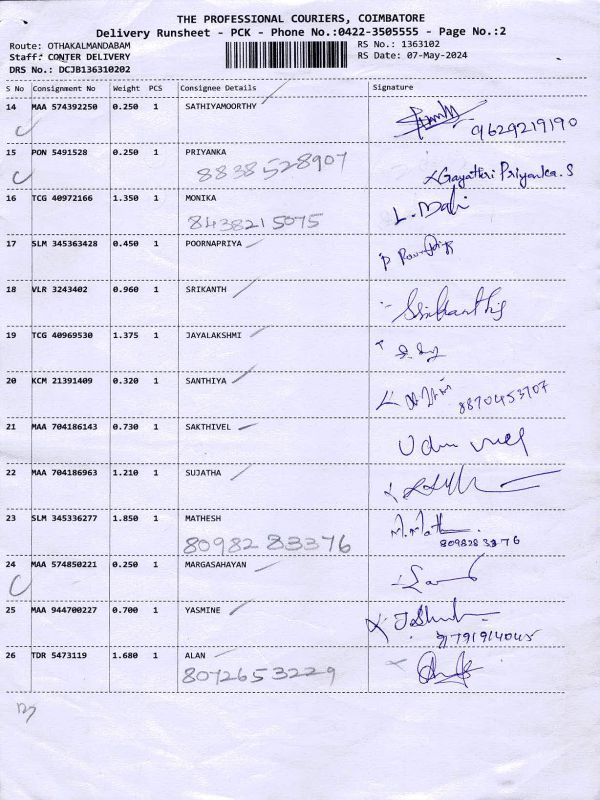 THE PROFESSIONAL COURIERS, COIMBATORE
Delivery Runsheet - PCK - Phone No.:0422-3505555 - Page No.:2
Route: OTHAKALMANDABAM RS No.: 1363102
Staff: CONTER DELIVERY RS Date: 07-May-2024
DRS No.: DCJB136310202
S No Consignment No Weight PCS Consignee Details Signature
14 MAA 574392250 0.250 1 SATHIYAMOORTHY
9629219190
15 PON 5491528 0.250 1 PRIYANKA
8838528907 Gayathri Priyanka.S
16 TCG 40972166 1.350 1 MONIKA
8438215075 L.
17 SLM 345363428 0.450 1 POORNAPRIYA
P
18 VLR 3243402 0.960 1 SRIKANTH
19 TCG 40969530 1.375 1 JAYALAKSHMI
20 KCM 21391409 0.320 1 SANTHIYA
8870453707
21 MAA 704186143 0.730 1 SAKTHIVEL
22 MAA 704186963 1.210 1 SUJATHA
23 SLM 345336277 1.850 1 MATHESH
8098283376 8098283376
24 MAA 574850221 0.250 1 MARGASAHAYAN
25 MAA 944700227 0.700 1 YASMINE
26 TDR 5473119 1.680 1 ALAN
8072653229